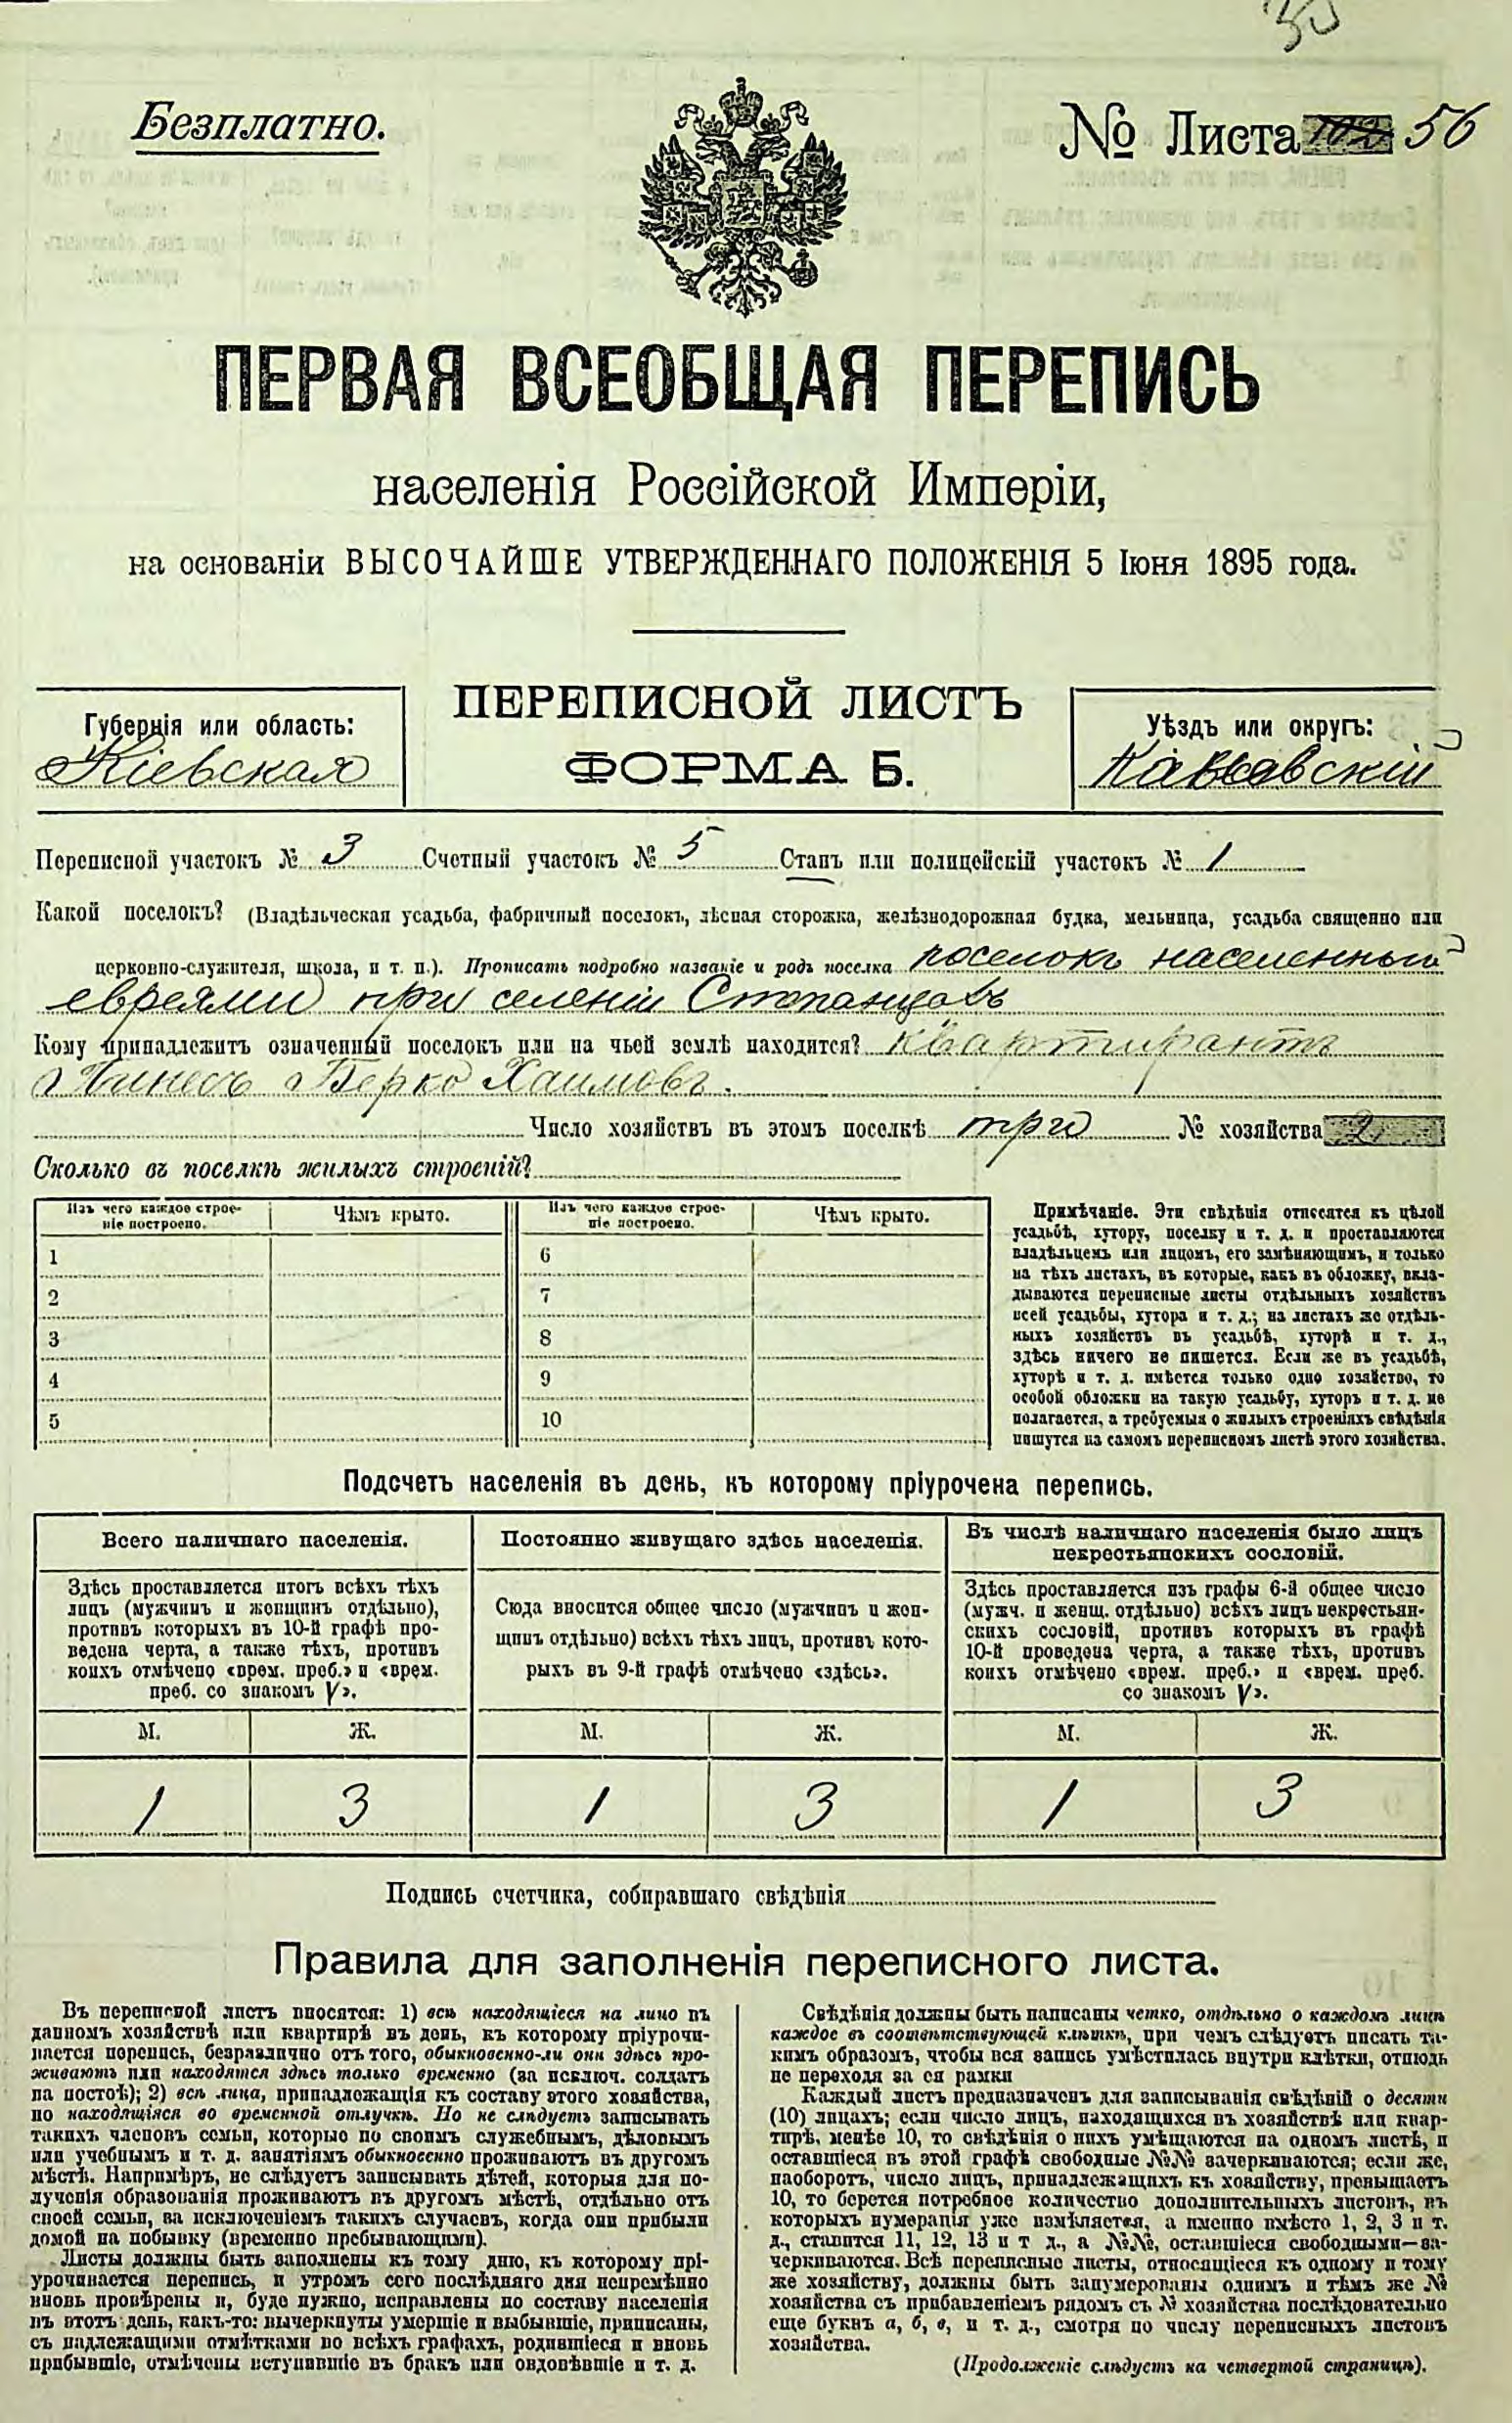 Безплатно.
№ Листа 102 56
ПЕРВАЯ ВСЕОБЩАЯ ПЕРЕПИСЬ
населенія Россійской Имперіи,
на основаніи ВЫСОЧАЙШЕ УТВЕРЖДЕННАГО ПОЛОЖЕНІЯ 5 Іюня 1895 года.
ПЕРЕПИСНОЙ ЛИСТЪ
ФОРМА Б.
Губернія или область:
Кіевская
Уѣздъ или округъ:
Каневскій
Переписной участокъ № 3 Счетный участокъ № 5 Станъ или полицейскій участокъ № 1
Какой поселокъ? (Владѣльческая усадьба, фабричный поселокъ, лѣсная сторожка, желѣзнодорожная будка, мельница, усадьба священно или
церковно-служителя, школа, и т. п.). Прописать подробно названіе и родъ поселка поселокъ населенный
евреями при селеніи Степанцовъ
Кому принадлежитъ означенный поселокъ или на чьей землѣ находится? квартирантъ
Берко Хаимовъ.
Число хозяйствъ въ этомъ поселкѣ три № хозяйства 2
Сколько въ поселкѣ жилыхъ строеній?
Изъ чего каждое строе-
ніе построено.
Чѣмъ крыто.
Изъ чего каждое строе-
ніе построено.
Чѣмъ крыто.
1 6
2 7
3 8
4 9
5 10
Примѣчаніе. Эти свѣдѣнія относятся къ цѣлой
усадьбѣ, хутору, поселку и т. д. и проставляются
владѣльцемъ или лицомъ, его замѣняющимъ, и только
на тѣхъ листахъ, въ которые, какъ въ обложку, вкла-
дываются переписные листы отдѣльныхъ хозяйствъ
всей усадьбы, хутора и т. д.; на листахъ же отдѣль-
ныхъ хозяйствъ въ усадьбѣ, хуторѣ и т. д.,
здѣсь ничего не пишется. Если же въ усадьбѣ,
хуторѣ и т. д. имѣется только одно хозяйство, то
особой обложки на такую усадьбу, хуторъ и т. д. не
полагается, а требуемыя о жилыхъ строеніяхъ свѣдѣнія
пишутся на самомъ переписномъ листѣ этого хозяйства.
Подсчетъ населенія въ день, къ которому пріурочена перепись.
Всего наличнаго населенія.
Здѣсь проставляется итогъ всѣхъ тѣхъ
лицъ (мужчинъ и женщинъ отдѣльно),
противъ которыхъ въ 10-й графѣ про-
ведена черта, а также тѣхъ, противъ
коихъ отмѣчено «врем. преб.» и «врем.
преб. со знакомъ V».
М. Ж.
1 3
Постоянно живущаго здѣсь населенія.
Сюда вносится общее число (мужчинъ и жен-
щинъ отдѣльно) всѣхъ тѣхъ лицъ, противъ кото-
рыхъ въ 9-й графѣ отмѣчено «здѣсь».
М. Ж.
1 3
Въ числѣ наличнаго населенія было лицъ
некрестьянскихъ сословій.
Здѣсь проставляется изъ графы 6-й общее число
(мужч. и женщ. отдѣльно) всѣхъ лицъ некрестьян-
скихъ сословій, противъ которыхъ въ графѣ
10-й проведена черта, а также тѣхъ, противъ
коихъ отмѣчено «врем. преб.» и «врем. преб.
со знакомъ V».
М. Ж.
1 3
Подпись счетчика, собиравшаго свѣдѣнія
Правила для заполненія переписного листа.
Въ переписной листъ вносятся: 1) всѣ находящіеся на лицо въ
данномъ хозяйствѣ или квартирѣ въ день, къ которому пріурочи-
вается перепись, безразлично отъ того, обыкновенно-ли они здѣсь про-
живаютъ или находятся здѣсь только временно (за исключ. солдатъ
на постоѣ); 2) всѣ лица, принадлежащія къ составу этого хозяйства,
но находящіяся во временной отлучкѣ. Но не слѣдуетъ записывать
такихъ членовъ семьи, которые по своимъ служебнымъ, дѣловымъ
или учебнымъ и т. д. занятіямъ обыкновенно проживаютъ въ другомъ
мѣстѣ. Напримѣръ, не слѣдуетъ записывать дѣтей, которыя для по-
лученія образованія проживаютъ въ другомъ мѣстѣ, отдѣльно отъ
своей семьи, за исключеніемъ такихъ случаевъ, когда они прибыли
домой на побывку (временно пребывающими).
Листы должны быть заполнены къ тому дню, къ которому прі-
урочивается перепись, и утромъ сего послѣдняго дня непремѣнно
вновь провѣрены и, буде нужно, исправлены по составу населенія
въ этотъ день, какъ-то: вычеркнуты умершіе и выбывшіе, приписаны,
съ надлежащими отмѣтками во всѣхъ графахъ, родившіеся и вновь
прибывшіе, отмѣчены вступившіе въ бракъ или овдовѣвшіе и т. д.
Свѣдѣнія должны быть написаны четко, отдѣльно о каждомъ лицѣ
каждое въ соотвѣтствующей клѣткѣ, при чемъ слѣдуетъ писать та-
кимъ образомъ, чтобы вся запись умѣстилась внутри клѣтки, отнюдь
не переходя за ея рамки
Каждый листъ предназначенъ для записыванія свѣдѣній о десяти
(10) лицахъ; если число лицъ, находящихся въ хозяйствѣ или квар-
тирѣ, менѣе 10, то свѣдѣнія о нихъ умѣщаются на одномъ листѣ, и
оставшіеся въ этой графѣ свободные №№ зачеркиваются; если же,
наоборотъ, число лицъ, принадлежащихъ къ хозяйству, превышаетъ
10, то берется потребное количество дополнительныхъ листовъ, въ
которыхъ нумерація уже измѣняется, а именно вмѣсто 1, 2, 3 и т.
д., ставится 11, 12, 13 и т д., а №№, оставшіеся свободными—за-
черкиваются. Всѣ переписные листы, относящіеся къ одному и тому
же хозяйству, должны быть занумерованы однимъ и тѣмъ же №
хозяйства съ прибавленіемъ рядомъ съ № хозяйства послѣдовательно
еще буквъ а, б, в, и т. д., смотря по числу переписныхъ листовъ
хозяйства.
(Продолженіе слѣдуетъ на четвертой страницѣ).